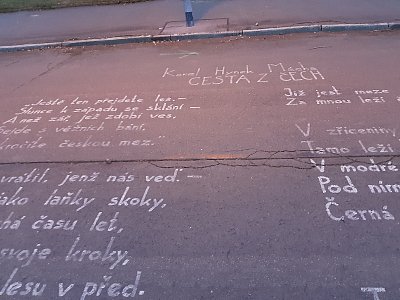 Karel Hynek Mácha
CESTA Z ČECH
„Ještě ten přejdete les. –
Slunce k západu se sklání –
A než zář, jež zdobí ves,
s věžních bání,
českou mez.“
vrátil, jenž nás ved. –
jako laňky skoky,
času let,
svoje kroky,
lesu v před.
Již jest meze
Za mnou leží
V zříceniny
Tamo leží
V modré
Pod ním
Černá